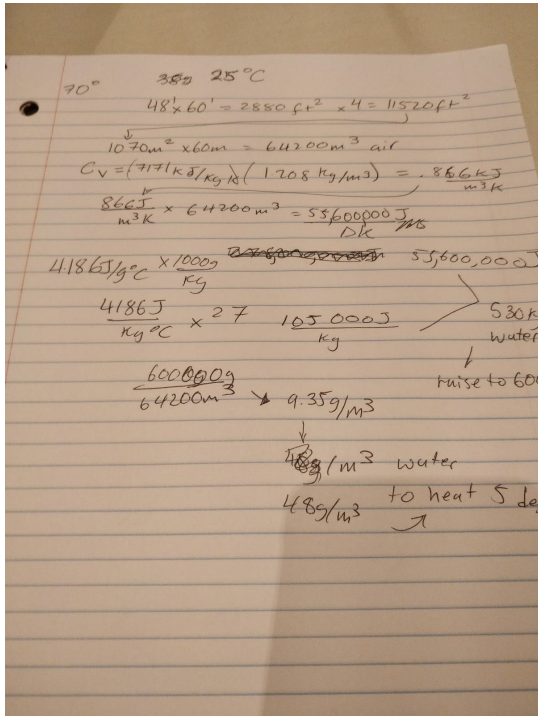 70° 25°C
48'x60' = 2880 ft² x4 = 11520ft²
1070m² x60m = 64200m³ air
Cv = (.7171kJ/kg K)(1.208 kg/m³) = .866kJ/m³K
866J/m³K x 64200m³ = 55,600000J/Dk
4.186J/g°C x 1000g/kg 55,600,000J
4186J/kg°C x 27 105000J/kg 530k
water
raise to 600
600000g/64200m³ → 9.35g/m³
g/m³ water
48g/m³ to heat 5 de